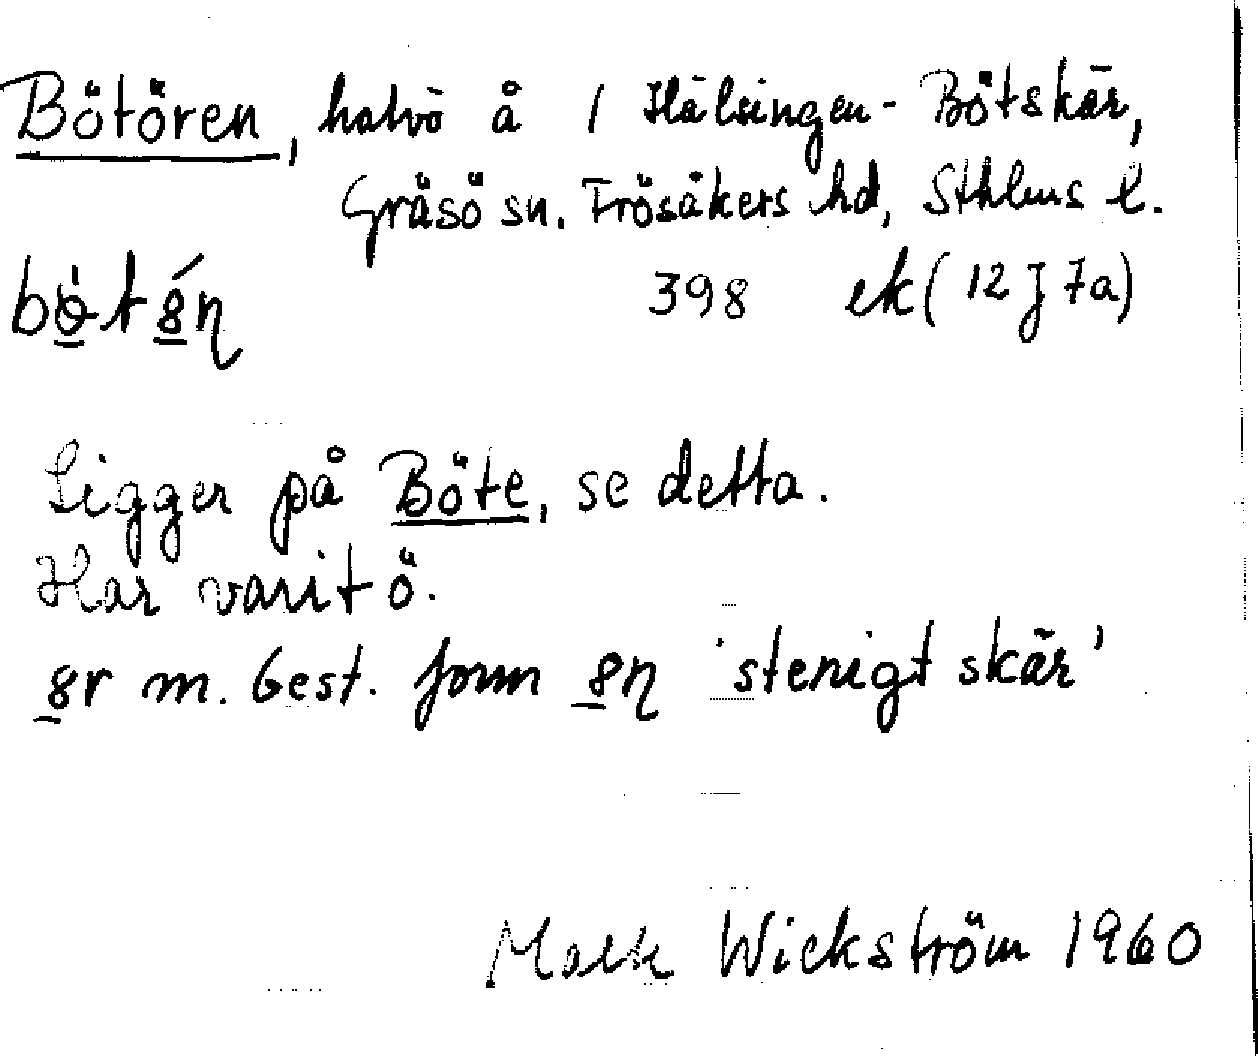 Bötören, halvö å 1 Hälsingen-Bötskär,
Gräsö sn. Frösåkers hd, Sthlms l.
398 ek (12 J 7a)
Ligger på Böte, se detta.
Har varit ö.
m. Best. form 'stenigt skär'
Wickström 1960